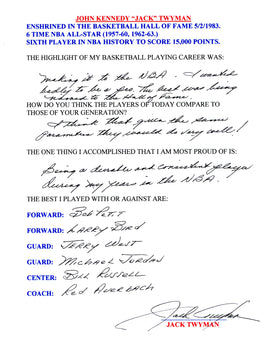 JOHN KENNEDY “JACK” TWYMAN
ENSHRINED IN THE BASKETBALL HALL OF FAME 5/2/1983.
6 TIME NBA ALL-STAR (1957-60, 1962-63.)
SIXTH PLAYER IN NBA HISTORY TO SCORE 15,000 POINTS.
THE HIGHLIGHT OF MY BASKETBALL PLAYING CAREER WAS:
making it to the NBA. I wanted
badly to be a pro. The best was being
named to the Hall of Fame.
HOW DO YOU THINK THE PLAYERS OF TODAY COMPARE TO
THOSE OF YOUR GENERATION?
I think that given the same
parameters they would do very well!
THE ONE THING I ACCOMPLISHED THAT I AM MOST PROUD OF IS:
Being a durable and consistent player
during my years in the NBA.
THE BEST I PLAYED WITH OR AGAINST ARE:
FORWARD: Bob Petit
FORWARD: Larry Bird
GUARD: Jerry West
GUARD: Michael Jordan
CENTER: Bill Russell
COACH: Red Auerbach
Jack Twyman
JACK TWYMAN